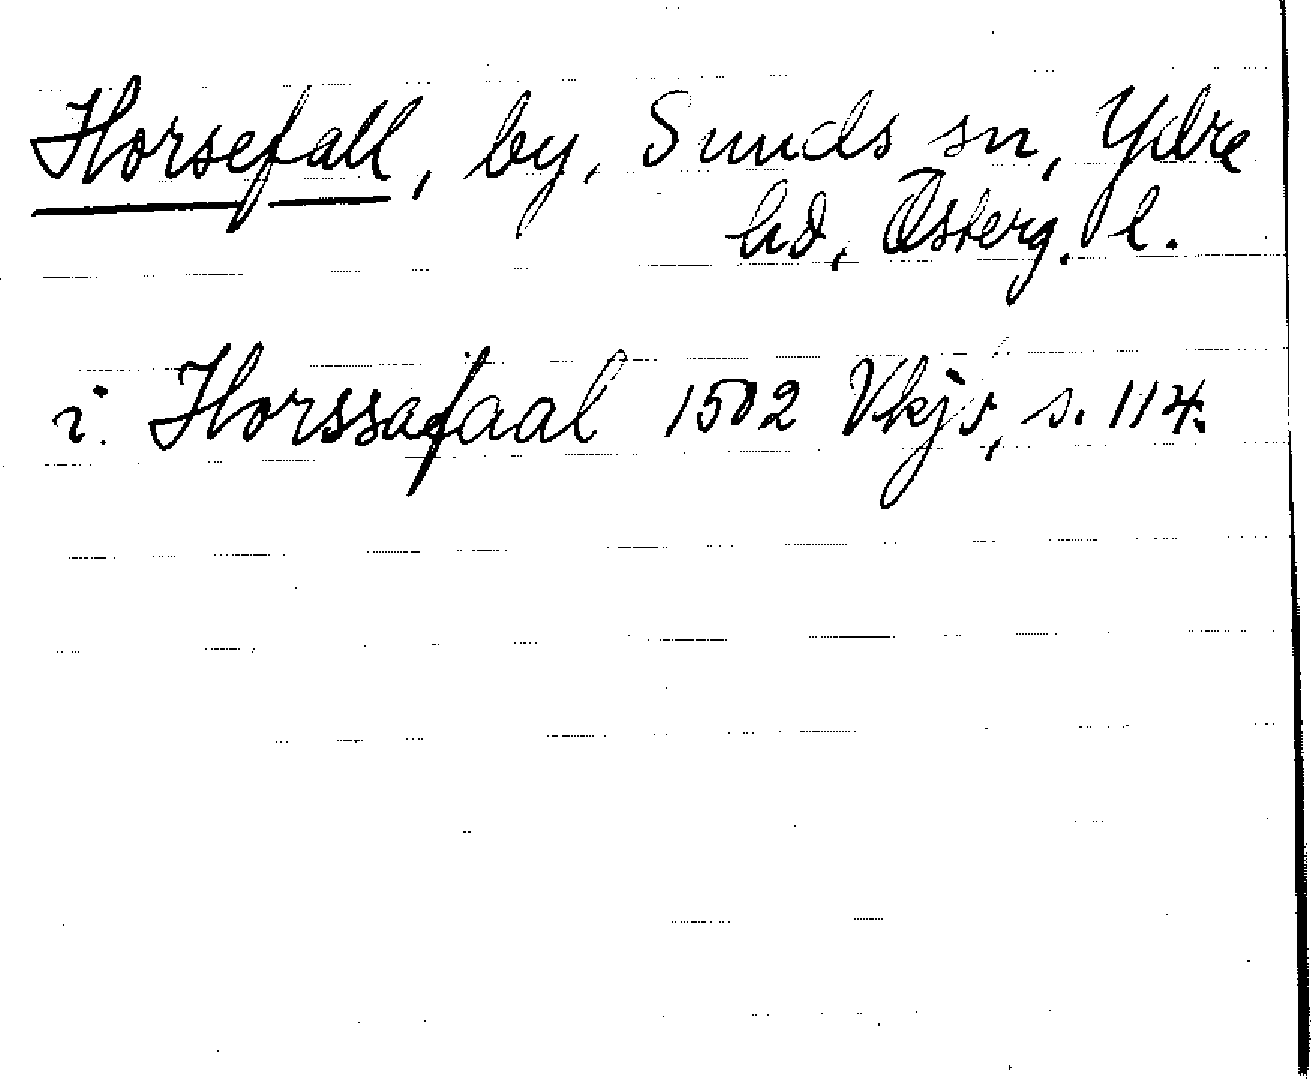 Horsefall, by, Sunds sn, Ydre
hd, Österg. l.
i. Horssafaal 1502 Vkjr, s. 114.